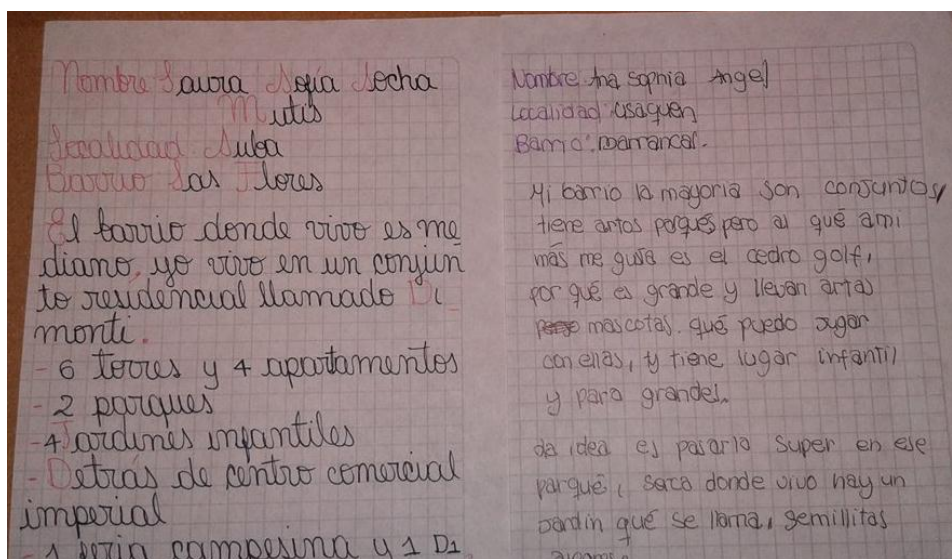 Nombre Laura Sofía Socha
Mutis
Localidad Suba
Barrio Las Flores
El barrio donde vivo es me
diano, yo vivo en un conjun
to residencial llamado Di
monti.
- 6 torres y 4 apartamentos
- 2 parques
- 4 Jardines infantiles
- Detrás de centro comercial
imperial
- 1 feria campesina y 1 D1
Nombre Ana Sophia Angel
Localidad: Usaquen
Barrio:
Mi barrio la mayoria son conjuntos y
tiene artos parqués pero al qué ami
más me gusta es el cedro golf,
por qué es grande y llevan artas
mascotas. qué puedo jugar
con ellas, y tiene lugar infantil
y para grandes.
da idea es pasarlo super en ese
parqué, serca donde vivo hay un
jardin qué se llama, semillitas